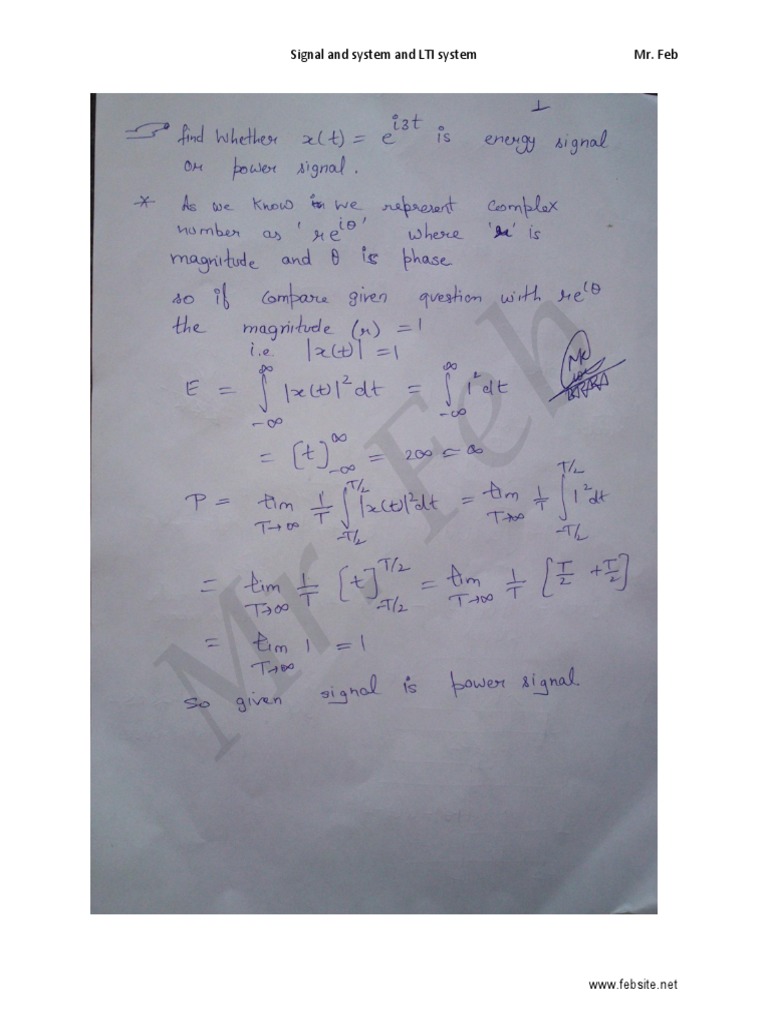 Signal and system and LTI system Mr. Feb
1
find whether x(t) = e^{i3t} is energy signal
or power signal.
* As we know we represent complex
number as 're^{iθ}' where 'r' is
magnitude and θ is phase
so if compare given question with re^{iθ}
the magnitude (r) = 1
i.e |x(t)| = 1
E = ∫_{-∞}^{∞} |x(t)|^2 dt = ∫_{-∞}^{∞} 1^2 dt
= [t]_{-∞}^{∞} = 2∞ = ∞
P = lim_{T→∞} 1/T ∫_{-T/2}^{T/2} |x(t)|^2 dt = lim_{T→∞} 1/T ∫_{-T/2}^{T/2} 1^2 dt
= lim_{T→∞} 1/T [t]_{-T/2}^{T/2} = lim_{T→∞} 1/T [T/2 + T/2]
= lim_{T→∞} 1 = 1
so given signal is power signal.
Mr. Feb
www.febsite.net